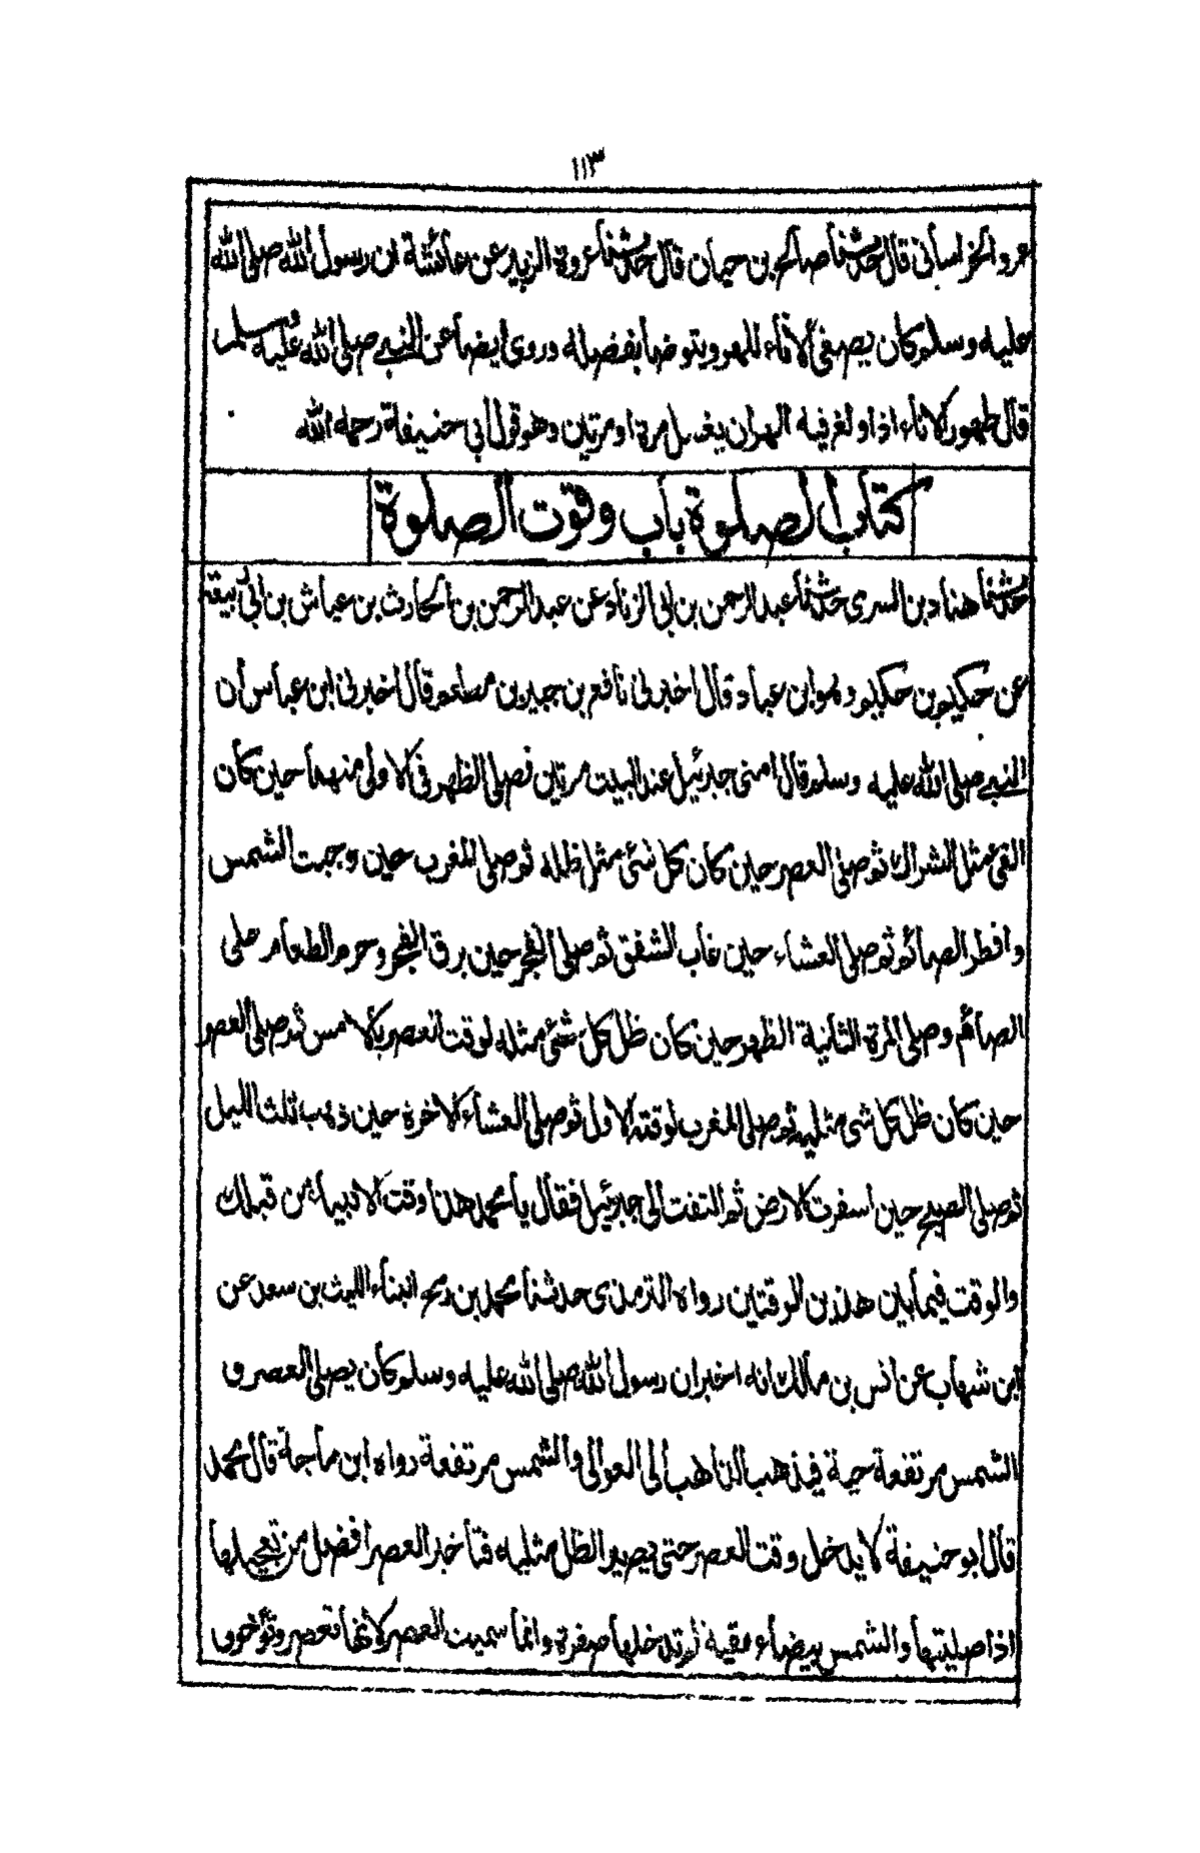 ١١٣
عمرو الخراسانى قال حدثنا صالح بن حيان قال حدثنا عروة الزبير عن عائشة ان رسول الله صلى الله
عليه وسلم كان يصغى الاناء للهر ويتوضا بفضله وروى ايضا عن النبى صلى الله عليه وسلم
قال طهور الاناء اذا ولغ فيه الهر ان يغسل مرة او مرتين وهو قول ابى حنيفة رحمه الله
كتاب الصلوة باب وقوت الصلوة
حدثنا هناد بن السرى حدثنا عبد الرحمن بن ابى الزناد عن عبد الرحمن بن الحارث بن عياش بن ابى ربيعة
عن حكيم بن حكيم وهو ابن عباد قال اخبرنى نافع بن جبير بن مطعم قال اخبرنى ابن عباس ان
النبى صلى الله عليه وسلم قال امنى جبرئيل عند البيت مرتين فصلى الظهر فى الاولى منهما حين كان
الفئ مثل الشراك ثم صلى العصر حين كان كل شئ مثل ظله ثم صلى المغرب حين وجبت الشمس
وافطر الصائم ثم صلى العشاء حين غاب الشفق ثم صلى الفجر حين برق الفجر وحرم الطعام على
الصائم وصلى المرة الثانية الظهر حين كان ظل كل شئ مثله لوقت العصر بالامس ثم صلى العصر
حين كان ظل كل شئ مثليه ثم صلى المغرب لوقته الاول ثم صلى العشاء الاخرة حين ذهب ثلث الليل
ثم صلى الصبح حين اسفرت الارض ثم التفت الى جبرئيل فقال يا محمد هذا وقت الانبياء من قبلك
والوقت فيما بين هذين الوقتين رواه الترمذى حدثنا محمد بن رمح انبناء الليث بن سعد عن
ابن شهاب عن انس بن مالك انه اخبر ان رسول الله صلى الله عليه وسلم كان يصلى العصر و
الشمس مرتفعة حية فيذهب الذاهب الى العوالى والشمس مرتفعة رواه ابن ماجة قال محمد
قال ابو حنيفة لا يدخل وقت العصر حتى يصير الظل مثليه فتأخير العصر افضل من تعجيلها
اذا صليتها والشمس بيضاء نقية لم تدخلها صفرة وانما سميت العصر لانها تعصر وتؤخر وى